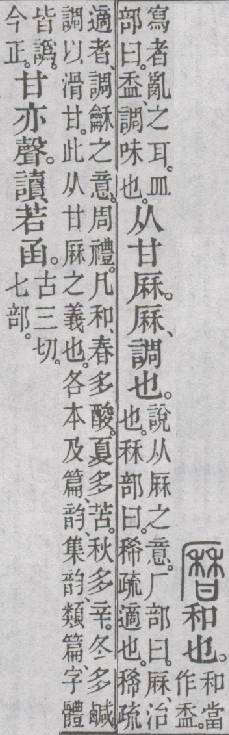 和也。和當
作盉。
寫者亂之耳。皿
部曰。盉、調味也。
从甘厤。厤、調也。
說从厤之意。厂部曰。厤治
也。秝部曰。稀疏適也。稀疏
適者、調龢之意。周禮。凡和、春多酸。夏多苦。秋多辛。冬多鹹
調以滑甘。此从甘厤之義也。各本及篇韵、集韵、類篇、字體
皆譌。
今正。
甘亦聲。讀若函。
古三切。
七部。